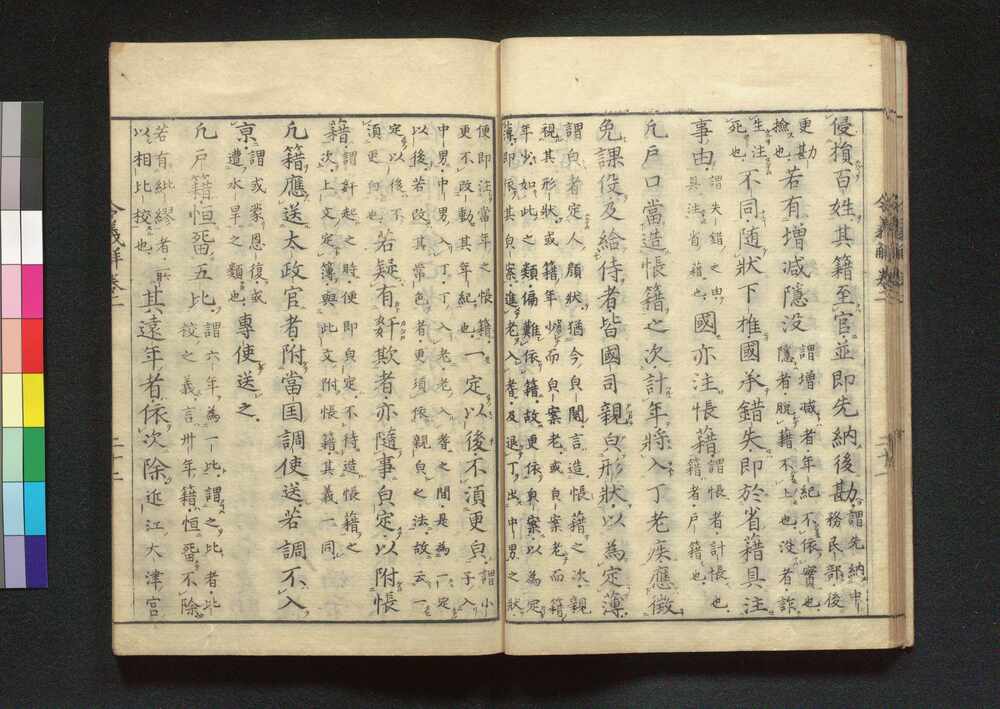 侵損百姓其籍至官並即先納後勘謂先納中
務民部後
更勘
撿也若有増減隠没謂増減者年紀不依實也
隠者脱籍不上也没者詐
生注
死也不同随狀下推國承錯失即於省籍具注
事由謂失錯之由
具注省籍也國亦注帳籍謂帳者計帳也
籍者戸籍也
凡戸口當造帳籍之次計年将入丁老疾應徴
免課役及給侍者皆國司親皃形狀以為定薄
謂皃者定人顔狀猶今皃閲言造帳籍之次親
視其形狀或籍年少而皃案老或皃案老而籍
年少如此之類偏難依籍故更依皃案以為定
薄即依其皃案進老入耆及退丁出中男之狀
便即注當年之帳籍
更不改動其年紀也一定以後不須更皃謂小
子入
中男中男入丁丁入老老入耆之間是為一定
以後若改其常色者更須依親皃之法故云一
定以後不
須更皃也若疑有奸欺者亦隨事皃定以附帳
籍謂奸起之時便即皃定不待造帳籍之
次上文定簿與此文附帳籍其義一同
凡籍應送太政官者附當国調使送若調不入
亰謂或蒙恩復或
遭水旱之類也專使送之
凡戸籍恒畱五比謂六年為一比謂之比者比
校之義言卅年籍恒畱不除
若有紕繆者
以相比校也其遠年者依次除近江大津宮
令義解卷二
二十二